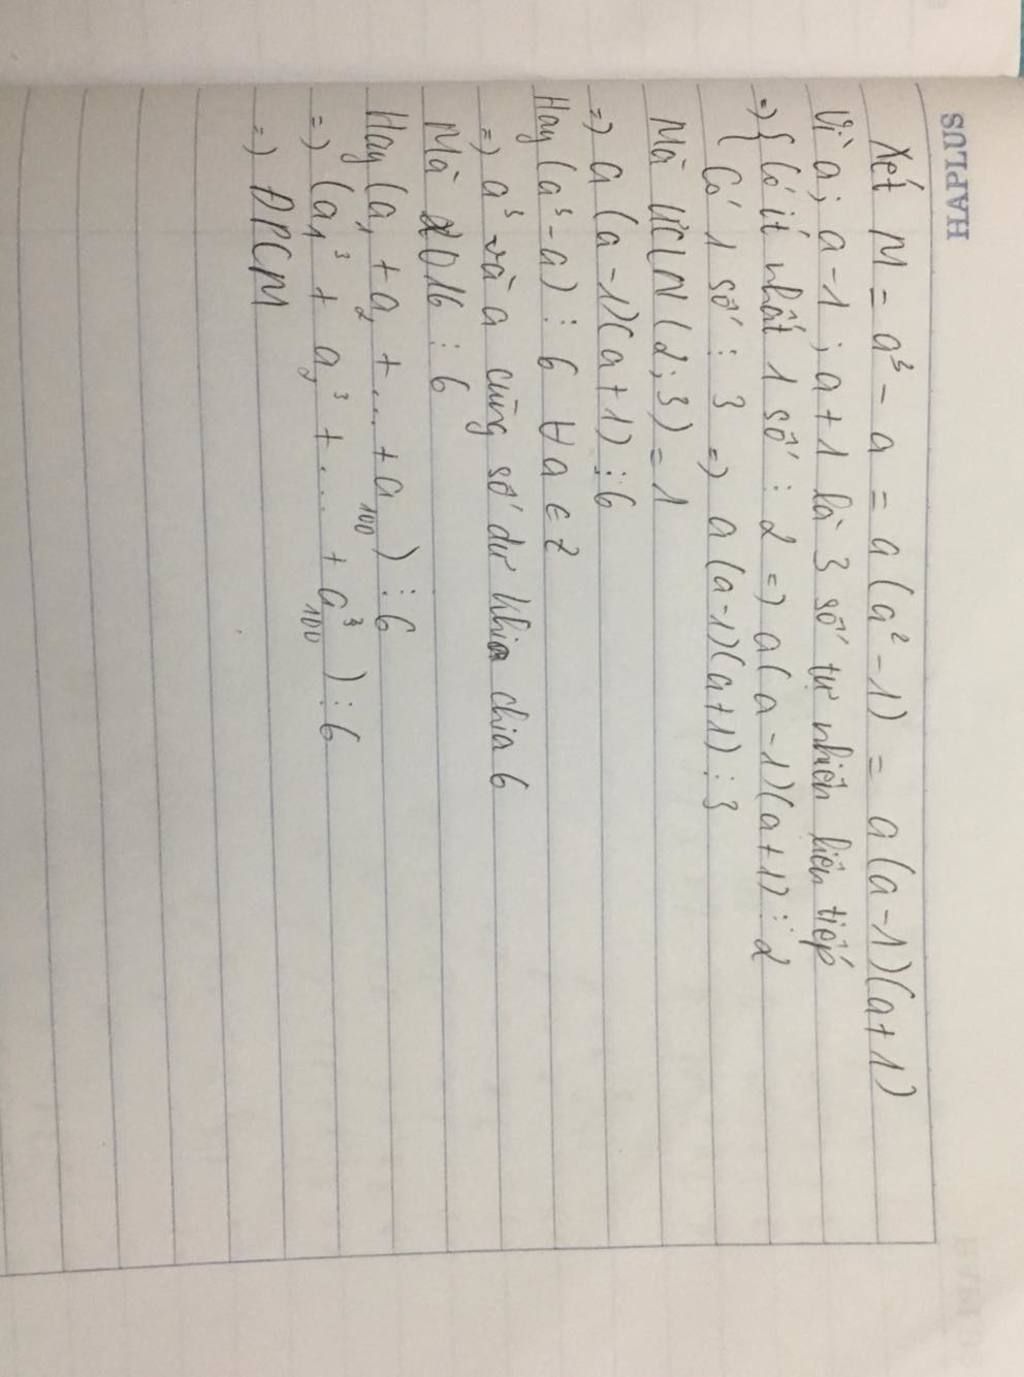 HAPLUS
Xét M = a³ - a = a(a² - 1) = a(a-1)(a+1)
Vì a; a-1; a+1 là 3 số tự nhiên liên tiếp
=> { Có ít nhất 1 số ⋮ 2 => a(a-1)(a+1) ⋮ 2
Có 1 số ⋮ 3 => a(a-1)(a+1) ⋮ 3
Mà ƯCLN(2;3) = 1
=> a(a-1)(a+1) ⋮ 6
Hay (a³-a) ⋮ 6 ∀ a ∈ Z
=> a³ và a cùng số dư khi chia 6
Mà 2016 ⋮ 6
Hay (a₁ + a₂ + ... + a₁₀₀) ⋮ 6
=> (a₁³ + a₂³ + ... + a₁₀₀³) ⋮ 6
=> ĐPCM